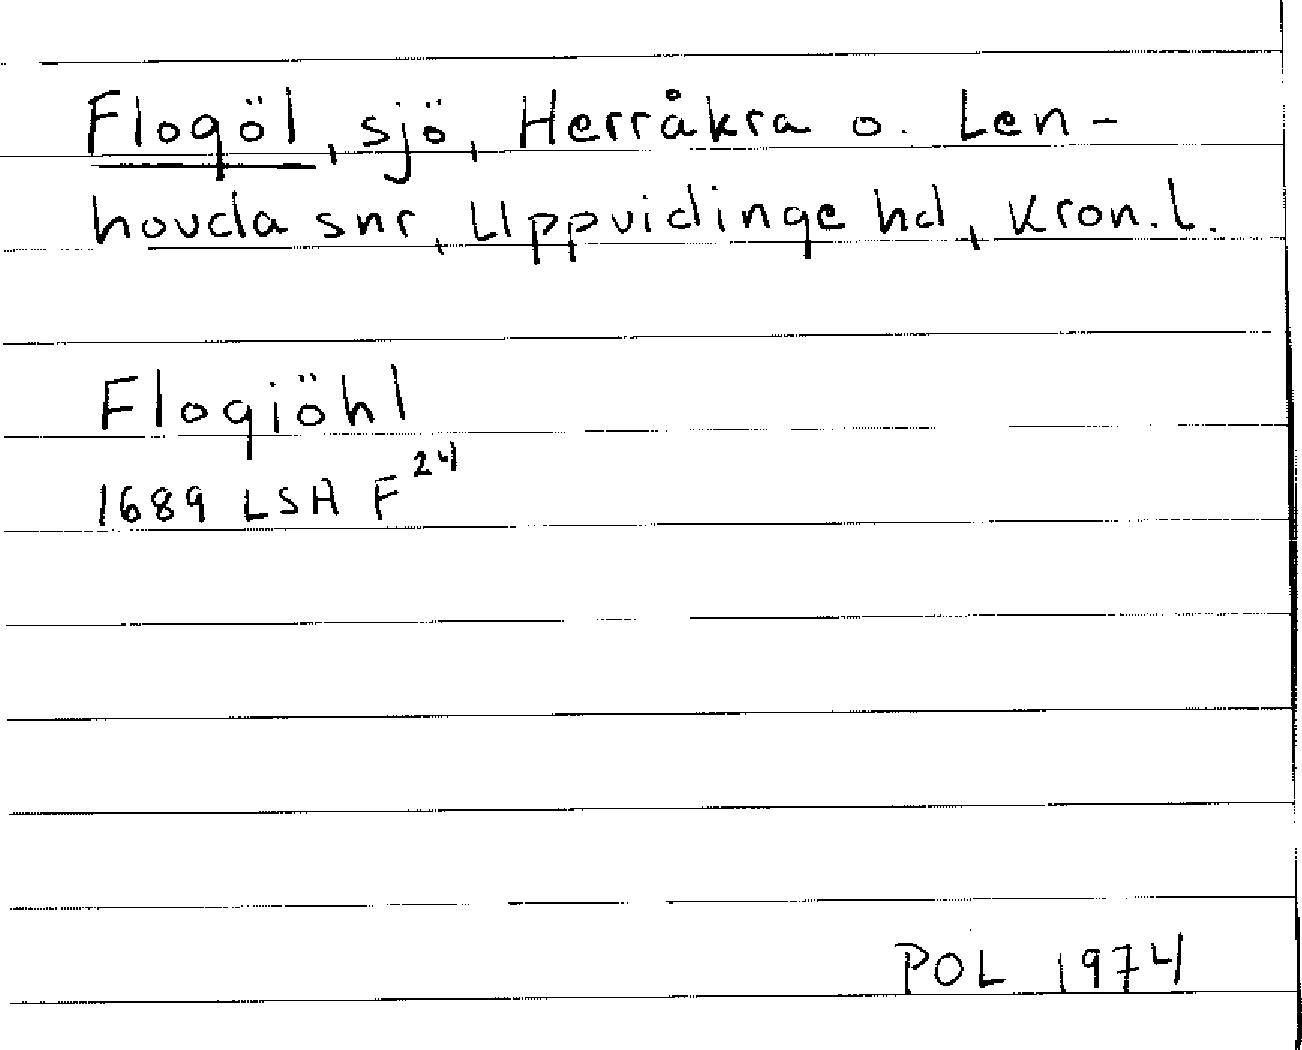 Flogöl, sjö, Herråkra o. Len-
hovda snr, Uppvidinge hd, Kron.l.
Flogiöhl
1689 LSA F 24
POL 1974